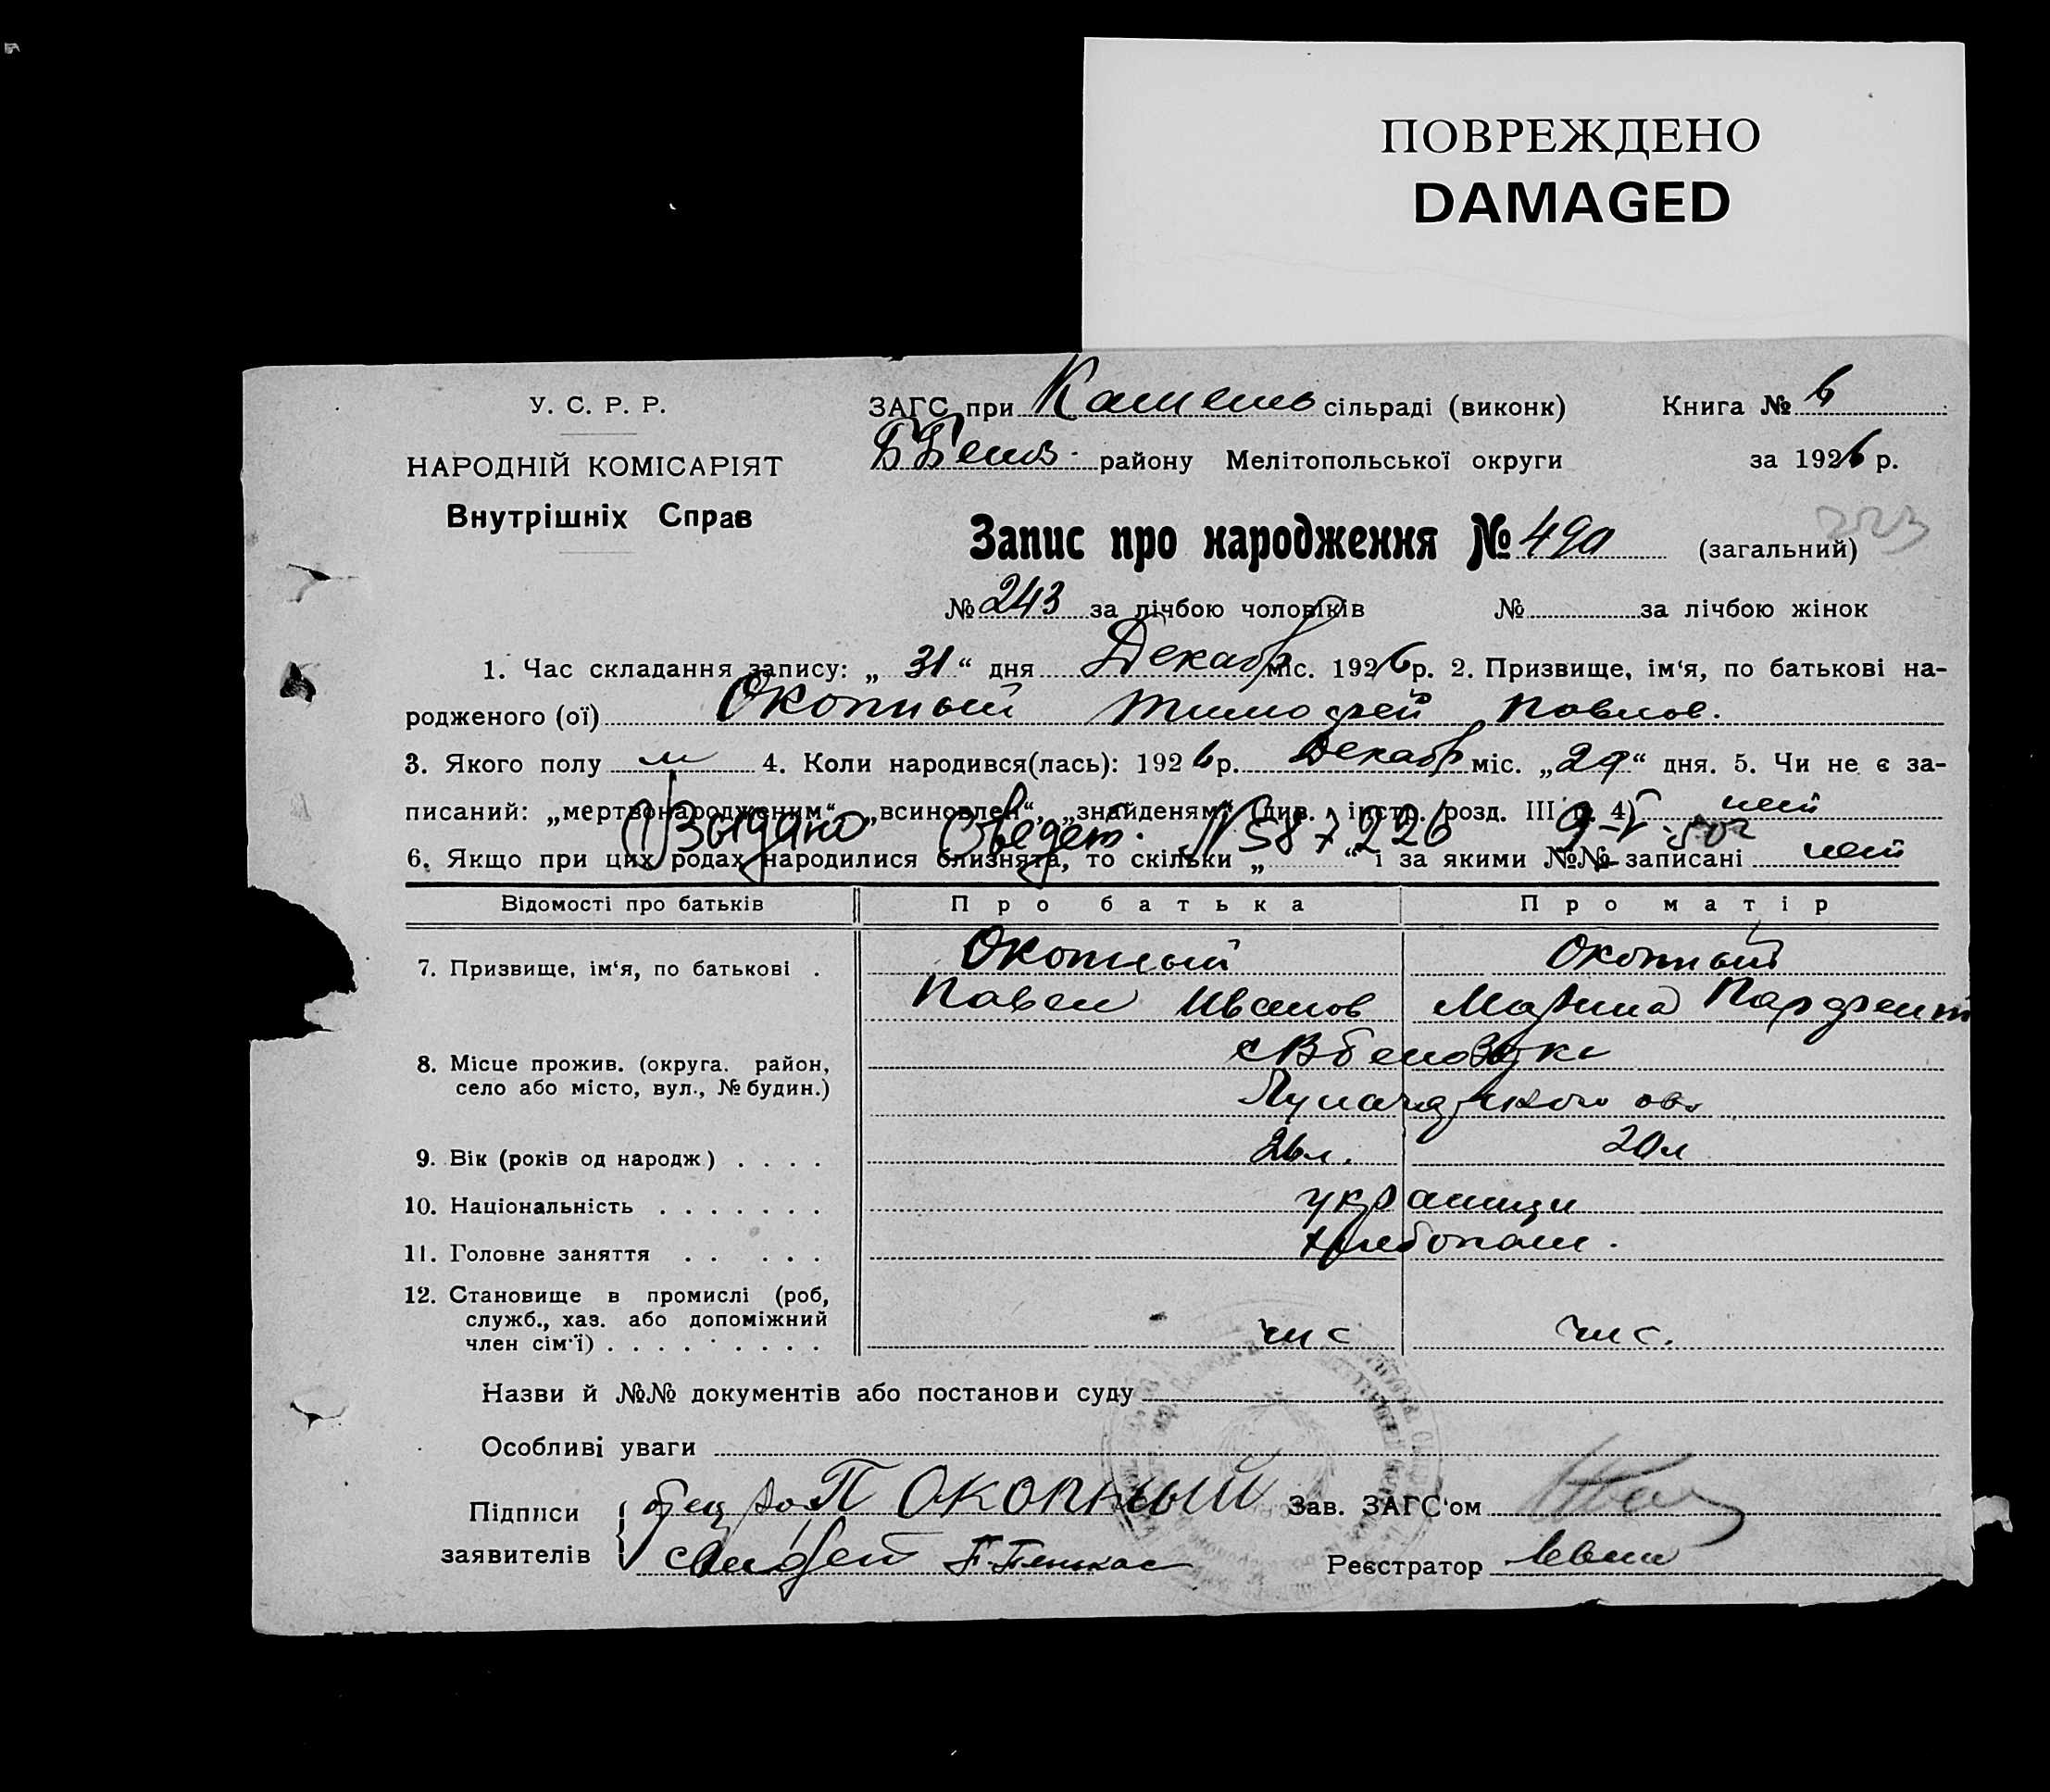 ПОВРЕЖДЕНО
DAMAGED
У. С. Р. Р.
НАРОДНІЙ КОМІСАРІЯТ
Внутрішніх Справ
ЗАГС при сільраді (виконк) Книга № 6
району Мелітопольської округи за 1926 р.
Запис про народження № 490 (загальний)
223
№ 243 за лічбою чоловіків № за лічбою жінок
1. Час складання запису: „ 31 “ дня Декабр міс. 1926 р. 2. Призвище, ім‘я, по батькові на-
родженого (ої) Окопный Тимофей Павлов.
3. Якого полу м 4. Коли народився(лась): 1926 р. Декабр міс. „29“ дня. 5. Чи не є за-
писаний: „мертвонародженим“ „всиновлен“, „знайденям“ (див. інстр. розд. III п. 4) нет
Выдано Сведет. № 587226 9-V-50г
6. Якщо при цих родах народилися близнята, то скільки „ “ і за якими №№ записані нет
Відомості про батьків Про батька Про матір
7. Призвище, ім‘я, по батькові . Окопный Окопный
Павел Иванов Марина Парфент
8. Місце прожив. (округа. район,
село або місто, вул., № будин.)
9. Вік (років од народж) . . . . 26 л. 20 л
10. Національність . . . . . . . украинци
11. Головне заняття . . . . . хлебопаш.
12. Становище в промислі (роб,
служб., хаз. або допоміжний
член сім‘ї) . . . . . . . . . чис чис.
Назви й №№ документів або постанови суду
Особливі уваги
Підписи П ОКОПНЫЙ Зав. ЗАГС‘ом
заявителів Реєстратор